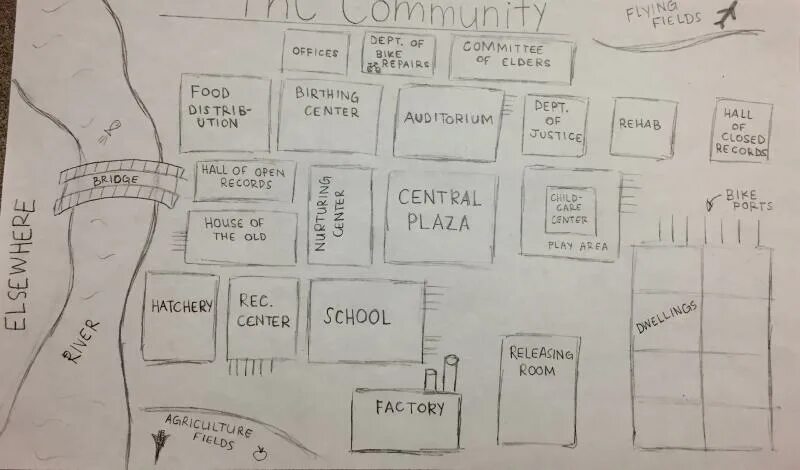 The Community
FLYING
FIELDS
OFFICES
DEPT. OF
BIKE
REPAIRS
COMMITTEE
OF ELDERS
FOOD
DISTRIB-
UTION
BIRTHING
CENTER
AUDITORIUM
DEPT.
OF
JUSTICE
REHAB
HALL
OF
CLOSED
RECORDS
BRIDGE
HALL OF OPEN
RECORDS
NURTURING
CENTER
CENTRAL
PLAZA
CHILD-
CARE
CENTER
PLAY AREA
BIKE
PORTS
ELSEWHERE
HOUSE OF
THE OLD
HATCHERY
REC.
CENTER
SCHOOL
DWELLINGS
RIVER
RELEASING
ROOM
FACTORY
AGRICULTURE
FIELDS